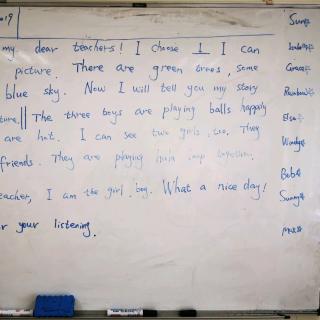 2019
my dear teachers! I choose 1 I can
picture. There are green trees, some
blue sky. Now I will tell you my story
ture. || The three boys are playing balls happily
are hot. I can see two girls, too. They
friends. They are playing together.
eacher, I am the girl boy. What a nice day!
r your listening.
Sun
Grace
Rainbow
Elsa
Windy
Bob
Sunny